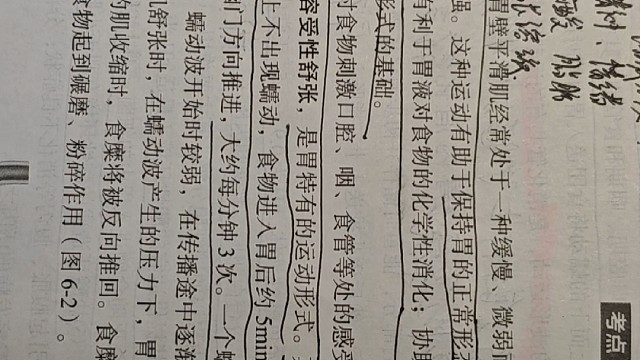 考点
神、情绪
酸 脂肪
胃壁平滑肌经常处于一种缓慢、微弱
强。这种运动有助于保持胃的正常形
有利于胃液对食物的化学性消化；协
形式的基础。
对食物刺激口腔、咽、食管等处的感受
容受性舒张，是胃特有的运动形式。
上不出现蠕动，食物进入胃后约5min
门方向推进，大约每分钟3次。一个蠕
蠕动波开始时较弱，在传播途中逐渐
肌舒张时，在蠕动波产生的压力下，胃
的肌收缩时，食糜将被反向推回。食糜
食物起到碾磨、粉碎作用（图6-2）。